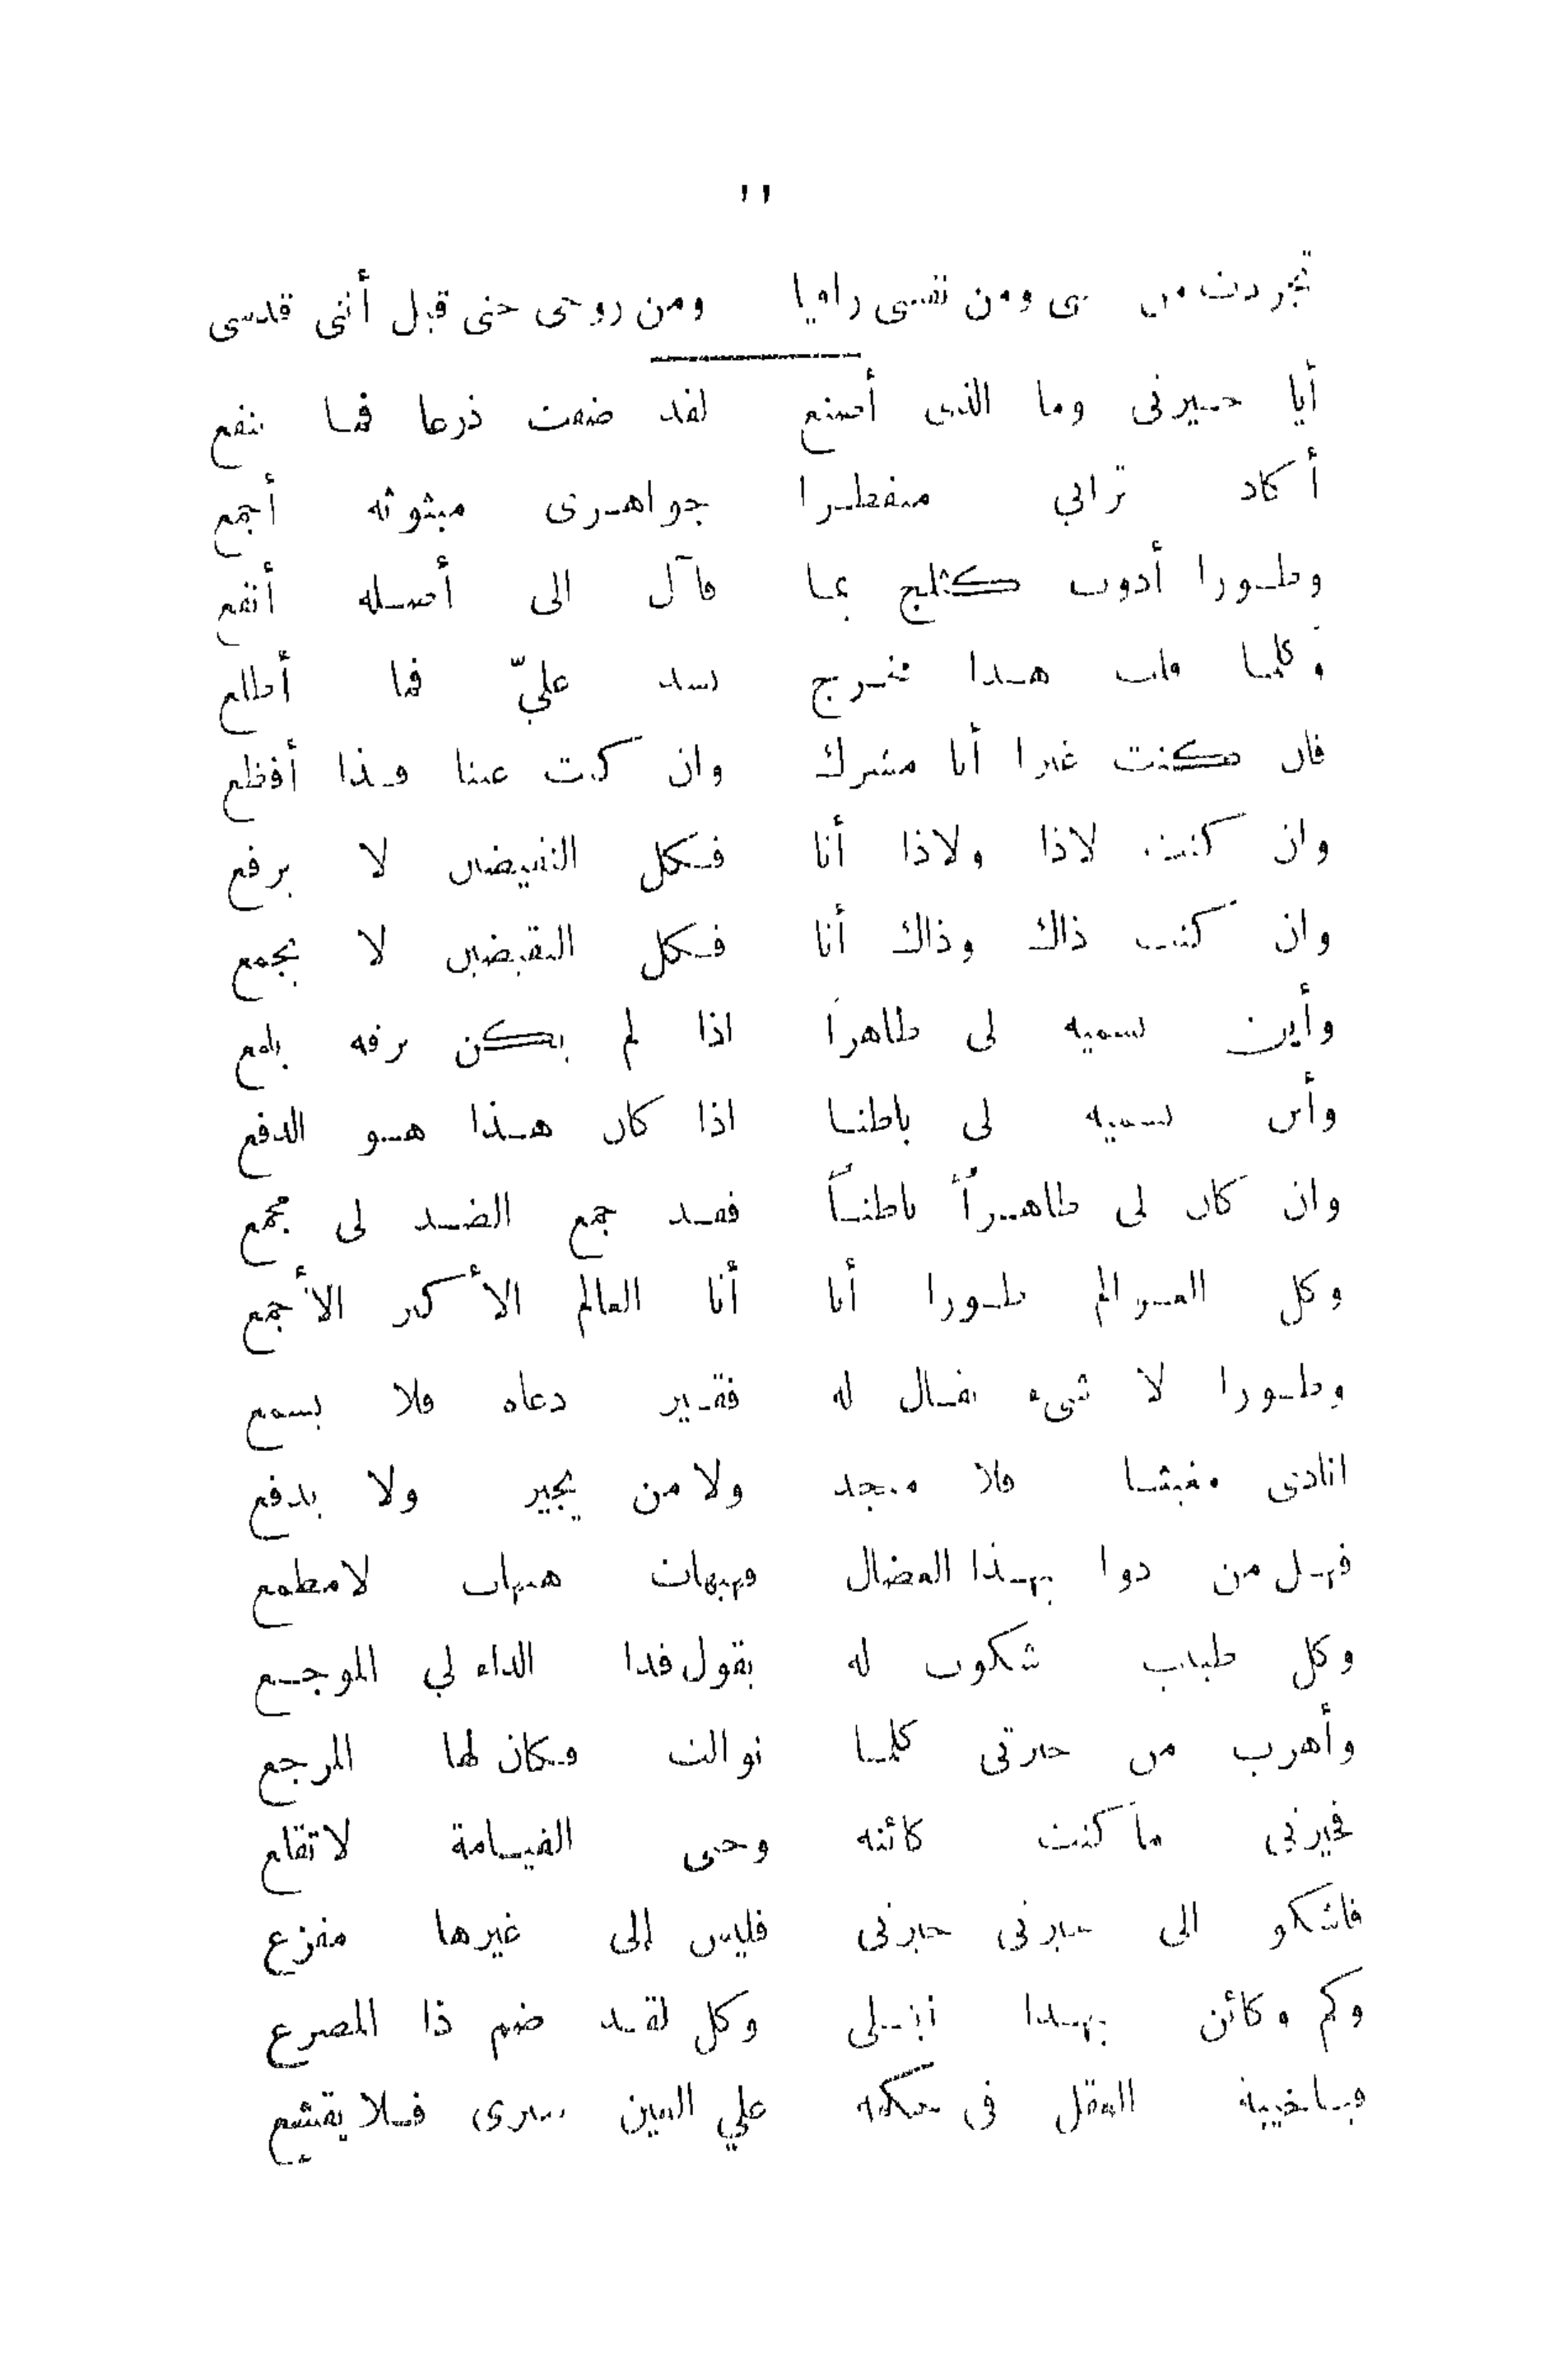 ١١
تجردت من حسى ومن نفسى راميا ومن روحى حتى قيل أنى قدسى
أيا حيرتى وما الذى أصنع لقد ضقت ذرعا فما ينفع
أكاد ترانى منفطرا جواهرى مبثوثه أجمع
وطورا أذوب كثلج بما فآل الى أصله أنقع
وكلما قلت هذا مخرج يسد عليّ فما أطلع
فان كنت غيرا أنا مشرك وان كنت عينا فذا أفظع
وان كنت لاذا ولاذا أنا فكل النقيضين لا يرفع
وان كنت ذاك وذاك أنا فكل النقيضين لا يجمع
وأين نسميه لى ظاهراً اذا لم يكن برقه يلمع
وأين نسميه لى باطنا اذا كان هذا هو المدفع
وان كان لى ظاهراً باطناً فقد جمع الضد لى مجمع
وكل العوالم طورا أنا أنا العالم الأكبر الأجمع
وطورا لا شىء يقال له فقير دعاه فلا يسمع
انادى مغيثا فلا منجد ولا من يجير ولا يدفع
فهل من دوا بهذا العضال فهيهات هيهات لا مطمع
وكل طبيب شكوت له يقول فذا الداء لي الموجع
وأهرب من حيرتى كلما توالت فكان لها المرجع
فحيرني ما كنت كائنه وحتى القيامة لا تقلع
فاشكو الى حيرتى حيرتى فليس إلى غيرها مفزع
وكم وكائن بهذا ابتلى وكل لقد ضم ذا المصرع
فيا خيبة العقل فى حكمه علي العين يسرى فلا يقشع